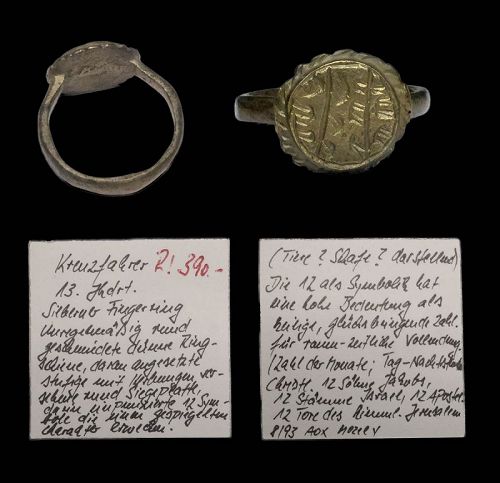 Kreuzfahrer R! 390.-
13. Jhdrt.
Silberner Fingerring
Unregelmäßig rund
geschmiedete dünne Ring-
schiene, daran angesetzte
mit ver-
sehene rund Siegelplatte,
darin 12 Sym-
bole die einen gespiegelten
Charakter erwecken.
(Tiere? Schafe? darstellend)
Die 12 als Symbolik hat
eine hohe Bedeutung als
heilige, glücksbringende Zahl
für raum-zeitliche Vollendung
(Zahl der Monate; Tag-Nachtstunden
Christi, 12 Söhne Jakobs,
12 Stämme Israel, 12 Apostel
12 Tore des himml. Jerusalem
8193